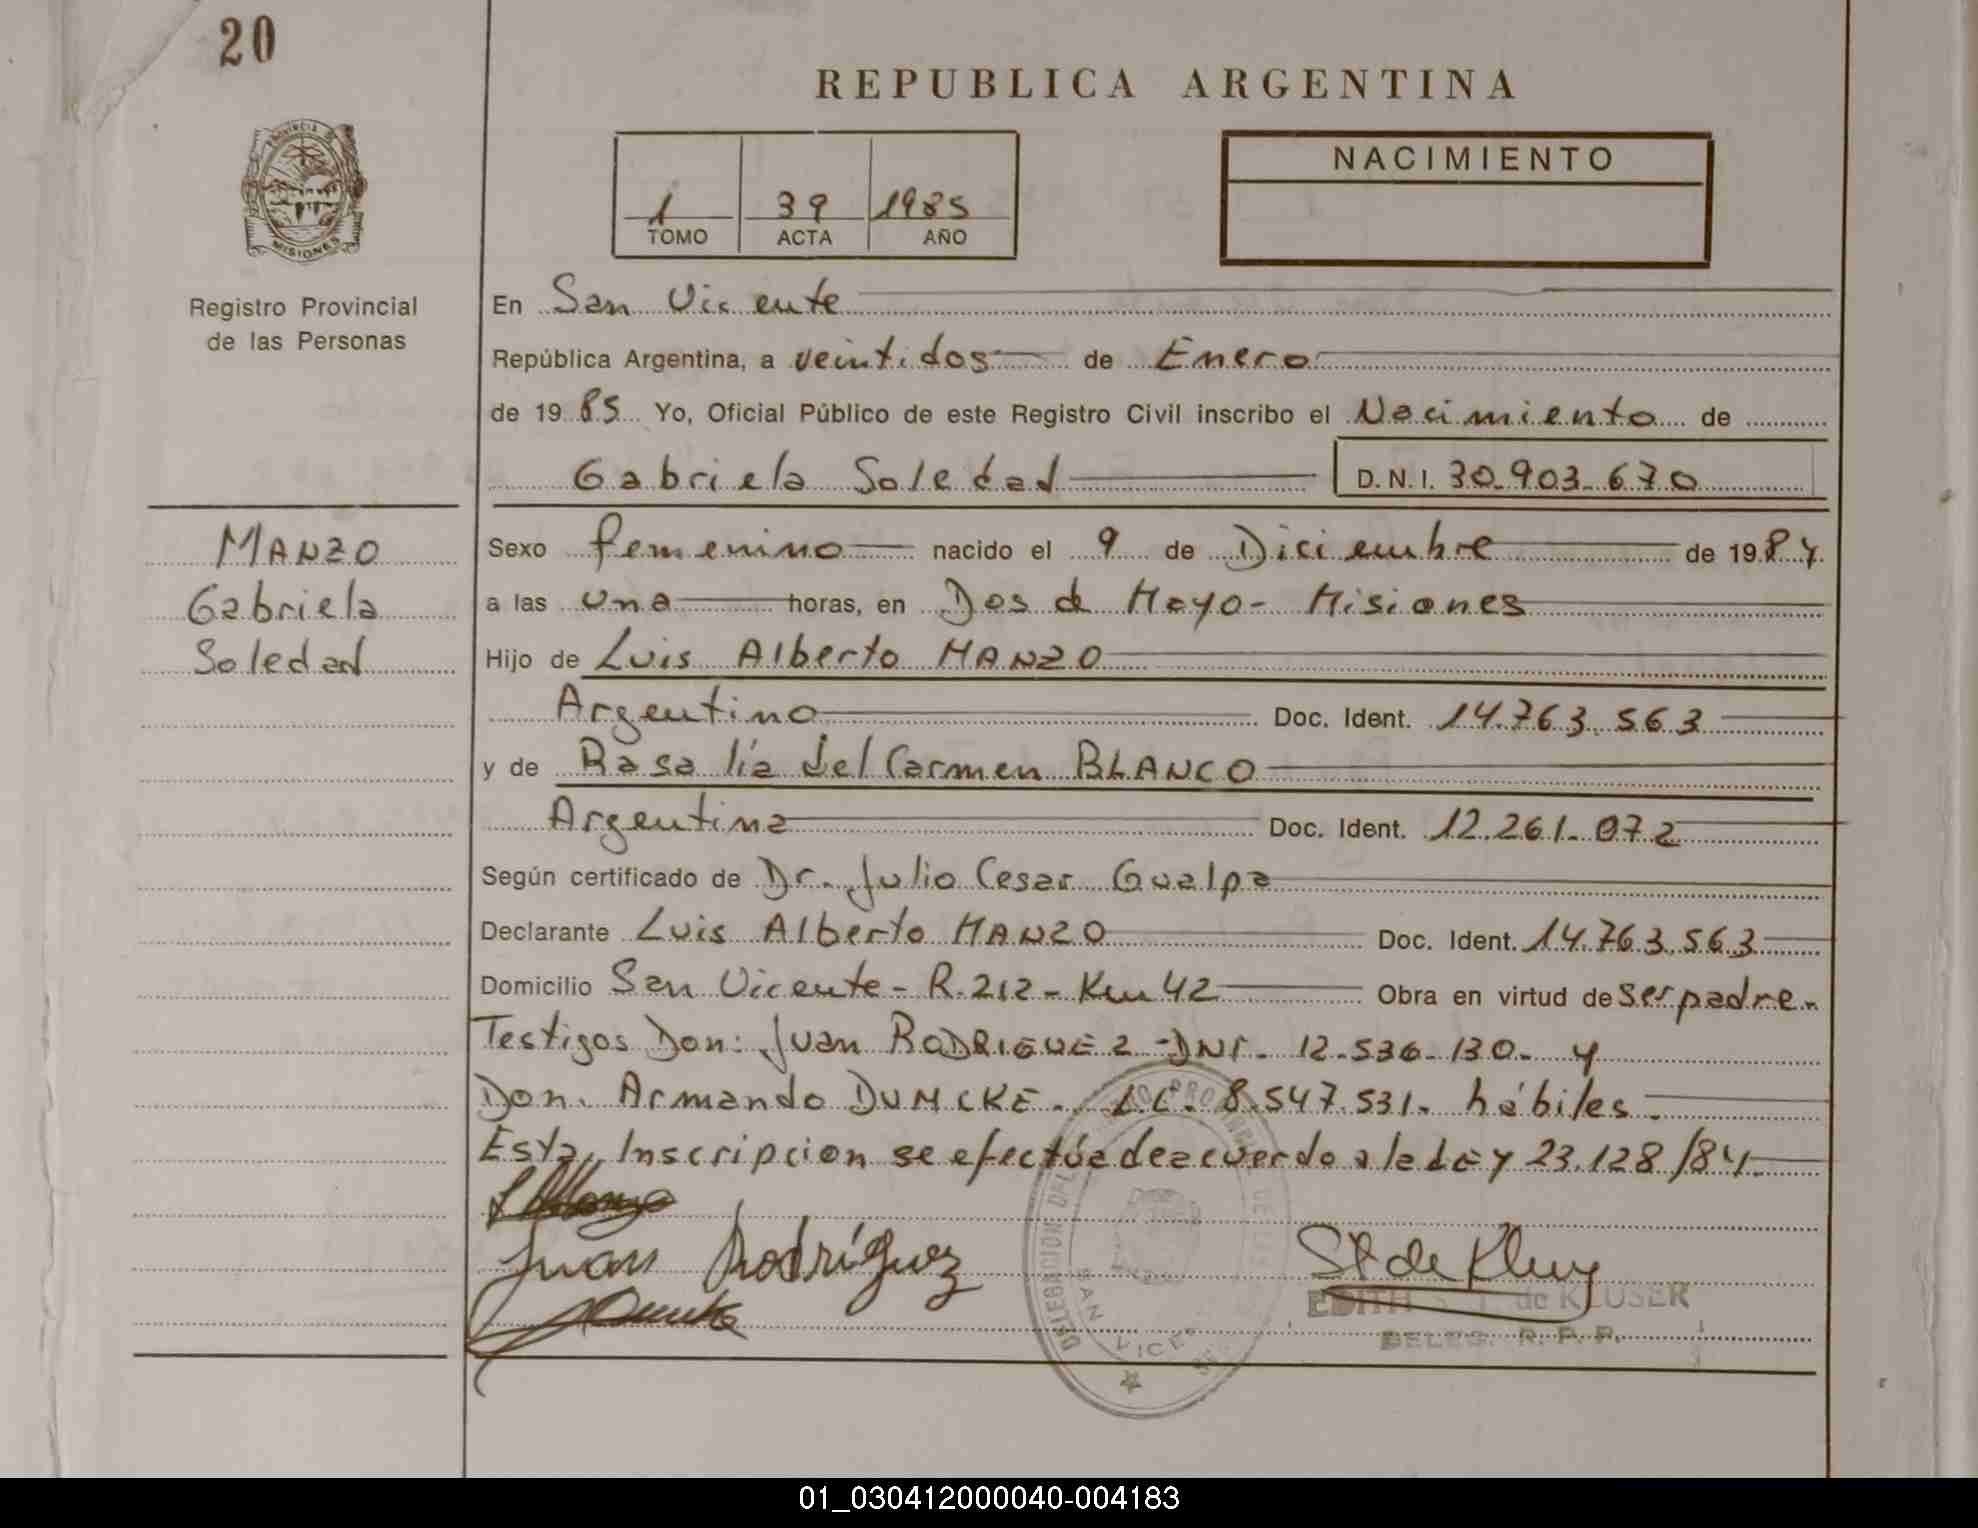 20
REPUBLICA ARGENTINA
PROVINCIA DE
MISIONES
1 39 1985
TOMO ACTA AÑO
NACIMIENTO
Registro Provincial
de las Personas
En San Vicente
República Argentina, a veintidos de Enero
de 1985 Yo, Oficial Público de este Registro Civil inscribo el Nacimiento de
Gabriela Soledad D.N.I. 30.903.670
MANZO
Gabriela
Soledad
Sexo femenino nacido el 9 de Diciembre de 1984
a las una horas, en Dos de Mayo - Misiones
Hijo de Luis Alberto MANZO
Argentino Doc. Ident. 14.763.563
y de Rosalía del Carmen BLANCO
Argentina Doc. Ident. 12.261.072
Según certificado de Dr. Julio Cesar Gualpa
Declarante Luis Alberto MANZO Doc. Ident. 14.763.563
Domicilio San Vicente - R.212 - Km 42 Obra en virtud de ser padre.
Testigos Don: Juan RODRIGUEZ - DNI. 12.536.130. y
Don. Armando DUMCKE. L.E. 8.547.531. hábiles.
Esta Inscripcion se efectúa de acuerdo a la LEY 23.128/84.
Juan Rodríguez
EDITH S. de KLUSER
DELEG. R. P. P.
DELEGACION DEL
SAN VICENTE
01_030412000040-004183